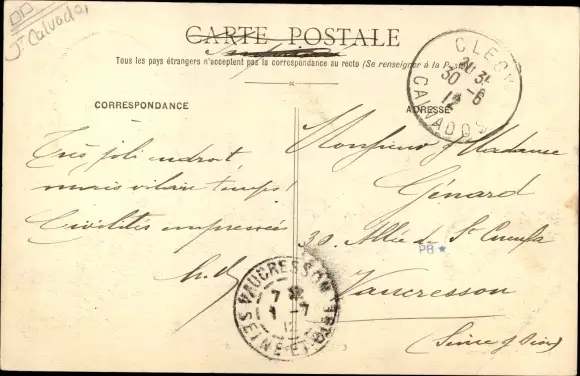 Jt Calvados
CARTE POSTALE
Tous les pays étrangers n'acceptent pas la correspondance au recto (Se renseigner à la Poste)
CLECY
20 35
30 -6
12
CALVADOS
CORRESPONDANCE
ADRESSE
Très joli endroit,
mais vilain temps!
Civilités empressées
Monsieur & Madame
Génard
30, Allée de St Cucufa
PB ★
Vaucresson
(Seine & Oise)
VAUCRESSON
7
1 -7
12
SEINE-ET-OISE